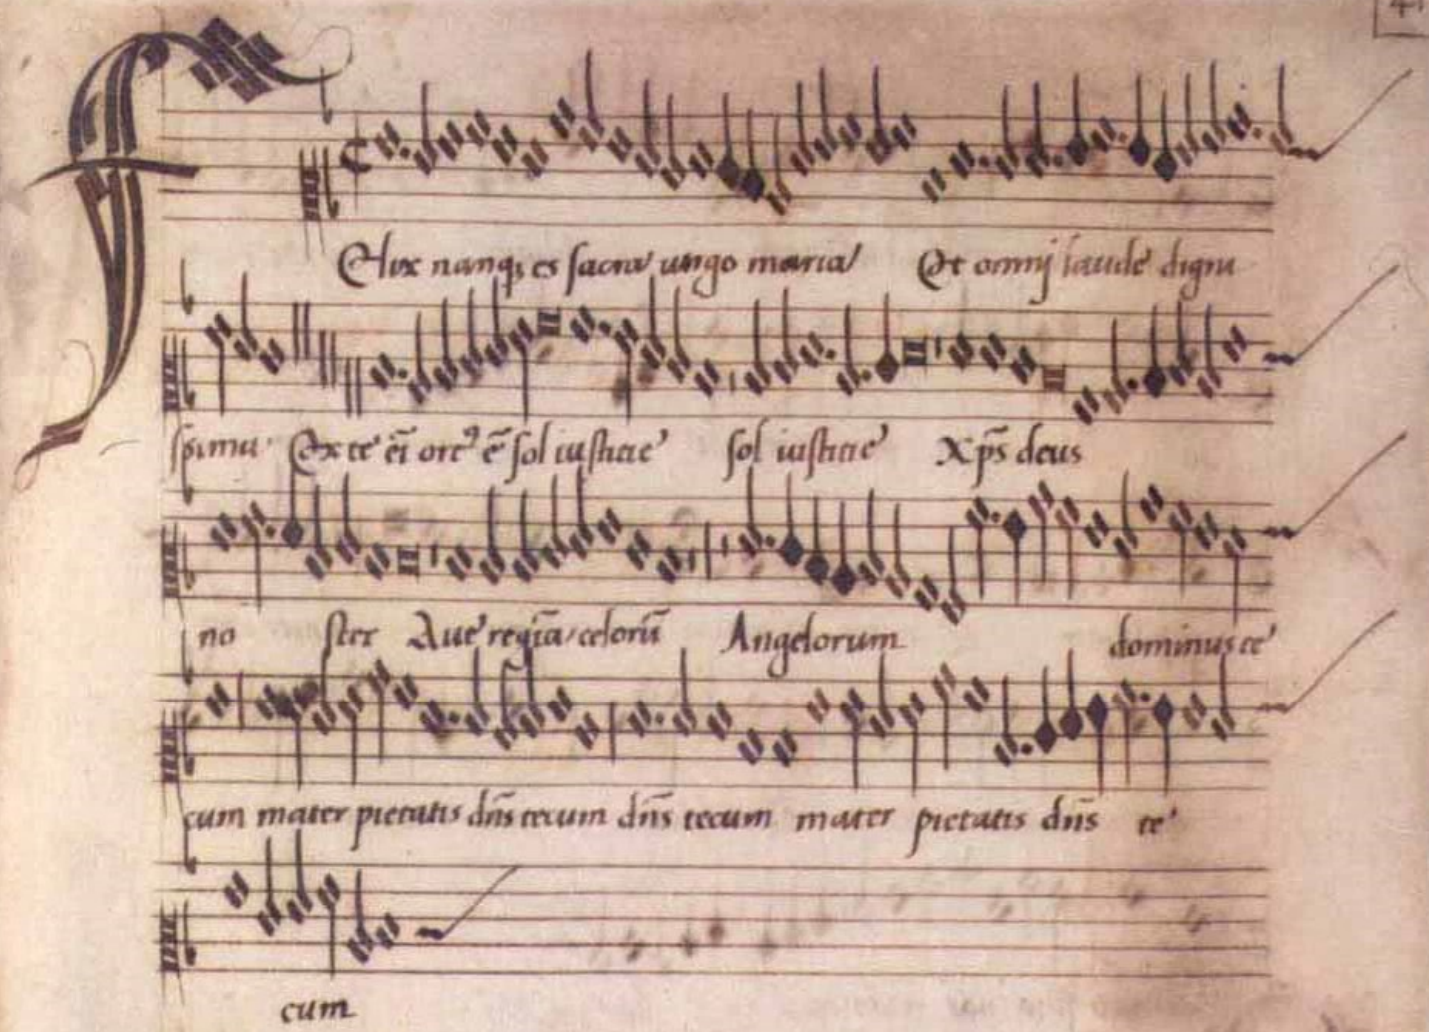 4
Felix nanq; es sacra uirgo maria Et omni laude digni
ssima Ex te ei̅ ort⁹ e̅ sol iusticie sol iusticie Xp̅s deus
no ster Aue regina celoru̅ Angelorum dominus te
cum mater pietatis dn̅s tecum dn̅s tecum mater pietatis dn̅s te
cum